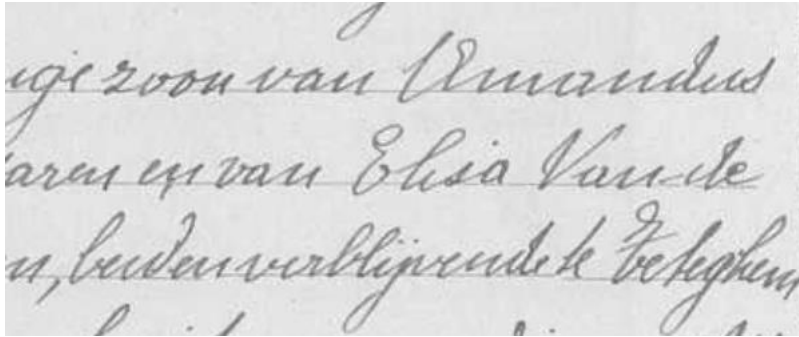 ige zoon van Amandus
aren en van Elisa Van de
n, beiden verblijvende te Eeteghem